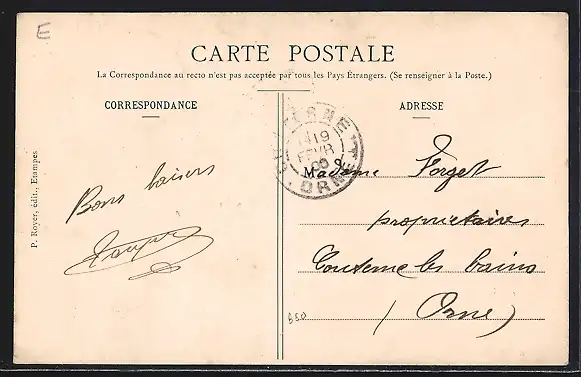 E
CARTE POSTALE
La Correspondance au recto n'est pas acceptée par tous les Pays Étrangers. (Se renseigner à la Poste.)
CORRESPONDANCE
ADRESSE
19
FEVR
ORNE
P. Royer, édit., Etampes
Bons baisers
Madame Forget
propriétaires
Couterne les bains
(Orne)